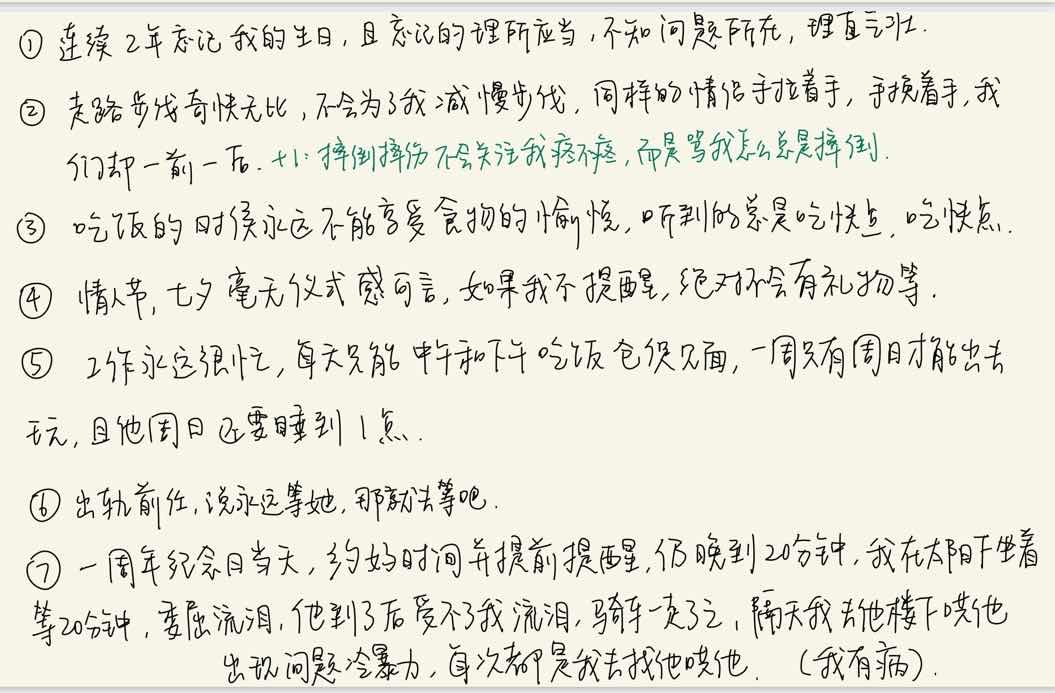 ① 连续2年忘记我的生日,且忘记的理所应当,不知问题所在,理直气壮.
② 走路步伐奇快无比,不会为了我减慢步伐,同样的情侣手拉着手,手挽着手,我
们却一前一后. +1: 摔倒摔伤不会关注我疼不疼,而是骂我怎么总是摔倒.
③ 吃饭的时候永远不能享受食物的愉悦,听到的总是吃快点,吃快点.
④ 情人节,七夕毫无仪式感可言,如果我不提醒,绝对不会有礼物等.
⑤ 工作永远很忙,每天只能中午和下午吃饭仓促见面,一周只有周日才能出去
玩,且他周日还要睡到1点.
⑥ 出轨前任,说永远等她,那就去等吧.
⑦ 一周年纪念日当天,约好时间并提前提醒,仍晚到20分钟,我在太阳下坐着
等20分钟,委屈流泪,他到了后受不了我流泪,骑车一走了之,隔天我去他楼下哄他
出现问题冷暴力,每次都是我去找他哄他. (我有病).